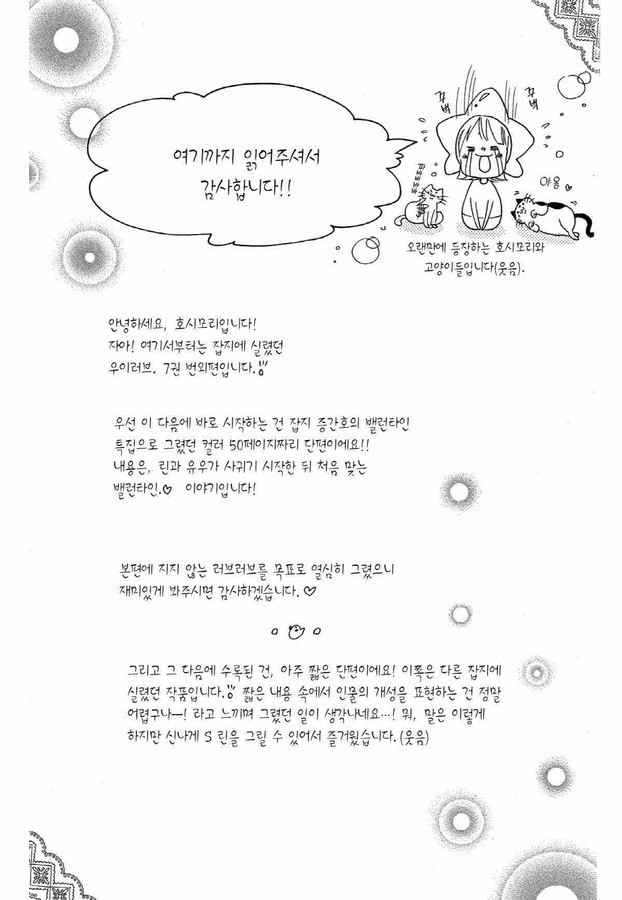 여기까지 읽어주셔서
감사합니다!!
꾸벅
꾸벅
야옹
오랜만에 등장하는 호시모리와
고양이들입니다(웃음).
안녕하세요, 호시모리입니다!
자아! 여기서부터는 잡지에 실렸던
우이러브. 7권 번외편입니다.
우선 이 다음에 바로 시작하는 건 잡지 증간호의 밸런타인
특집으로 그렸던 컬러 50페이지짜리 단편이에요!!
내용은, 린과 유우가 사귀기 시작한 뒤 처음 맞는
밸런타인.♡ 이야기입니다!
본편에 지지 않는 러브러브를 목표로 열심히 그렸으니
재미있게 봐주시면 감사하겠습니다.♡
그리고 그 다음에 수록된 건, 아주 짧은 단편이에요! 이쪽은 다른 잡지에
실렸던 작품입니다. 짧은 내용 속에서 인물의 개성을 표현하는 건 정말
어렵구나—! 라고 느끼며 그렸던 일이 생각나네요…! 뭐, 말은 이렇게
하지만 신나게 S 린을 그릴 수 있어서 즐거웠습니다.(웃음)